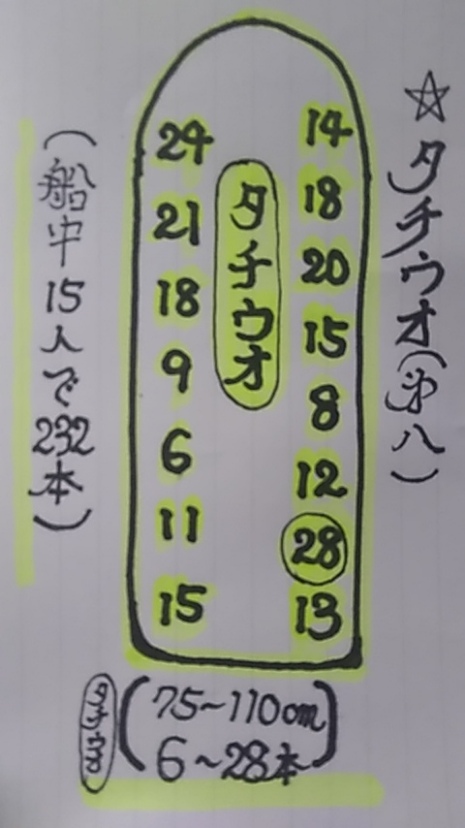 ☆タチウオ(第八)
タチウオ
24 14
21 18
18 20
9 15
6 8
11 12
28
15 13
(船中15人で232本)
タチウオ
75~110cm
6~28本